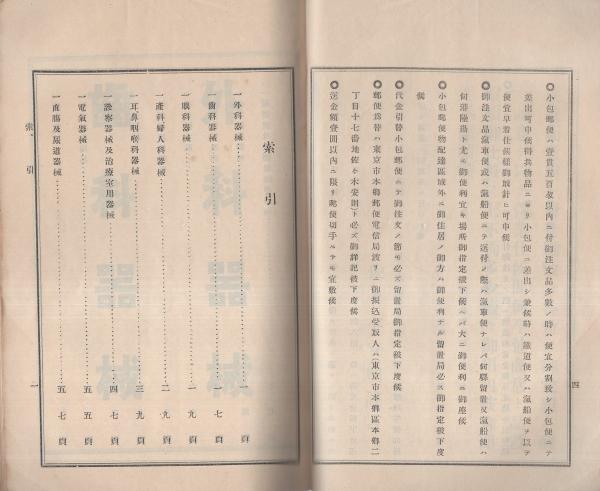 ◎小包郵便ハ壹貫五百匁以内ニ付御注文品多數ノ時ハ便宜分割致シ小包便ニテ
差出可申候得共物品ニヨリ小包便ニ差出シ兼候時ハ鐵道便又ハ滊船便ヲ以テ
便宜早着仕候樣御成計ヒ可申候
◎御注文品滊車便或ハ滊船便ニテ送付ノ際ハ滊車便ナレバ何驛留置又滊船便ハ
何港陸揚ト尤モ御便利宜キ場所御指定被下候ヘバ大ニ御便利ニ御座候
◎小包郵便物配達區域外ニ御住居ノ御方ハ御便利ナル留置局必ズ御指定被下度
候
◎代金引替小包郵便ニテ御注文ノ節モ必ズ留置局御指定被下度候
◎郵便爲替ハ東京市本鄕郵便電信局渡リニ御振込受取人ハ(東京市本鄕區本鄕二
丁目十七番地佐々木
必ズ御詳記被下度候
◎送金額壹圓以內ニ限リ郵便切手ニテモ宜敷候
四
索引
一外科器械 一頁
一齒科器械 一七頁
一眼科器械 一九頁
一產科婦人科器械 二九頁
一耳鼻咽喉科器械 三九頁
一診察器械及治療室用器械 四七頁
一電氣器械 五五頁
一直腸及尿道器械 五七頁
索引
一